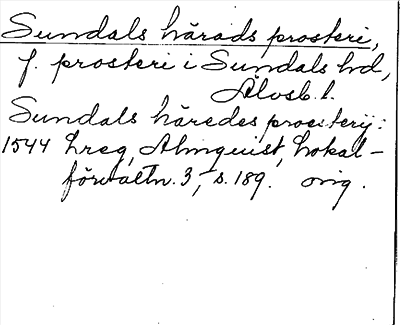 Sundals härads prosteri,
f. prosteri i Sundals hd,
Älvsb. l.
Sundals häredes prosterij:
1544 Lreg, Almquist, Lokal-
förvaltn. 3, s. 189. orig.